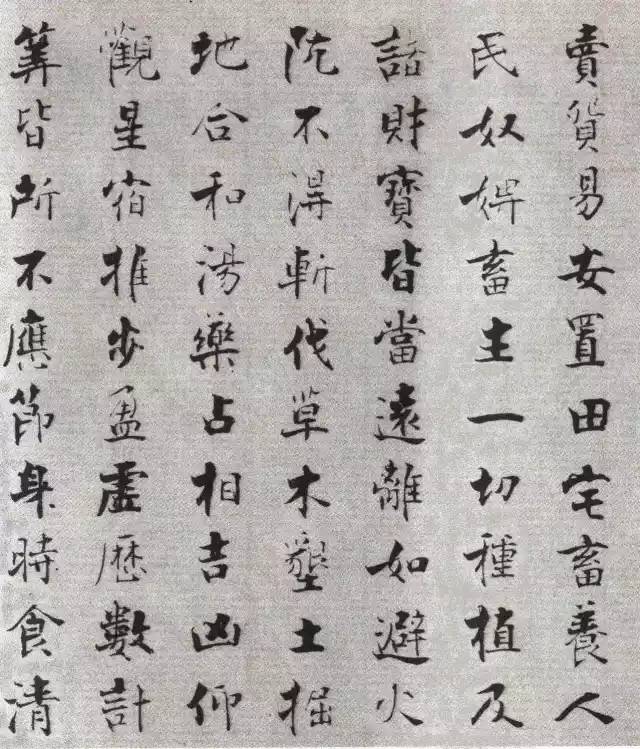 賣貨易安置田宅畜養人
民奴婢畜生一切種植及
諸財寶皆當遠離如避火
阬不得斬伐草木墾土掘
地合和湯藥占相吉凶仰
觀星宿推步盈虛歷數計
筭皆所不應節身時食清